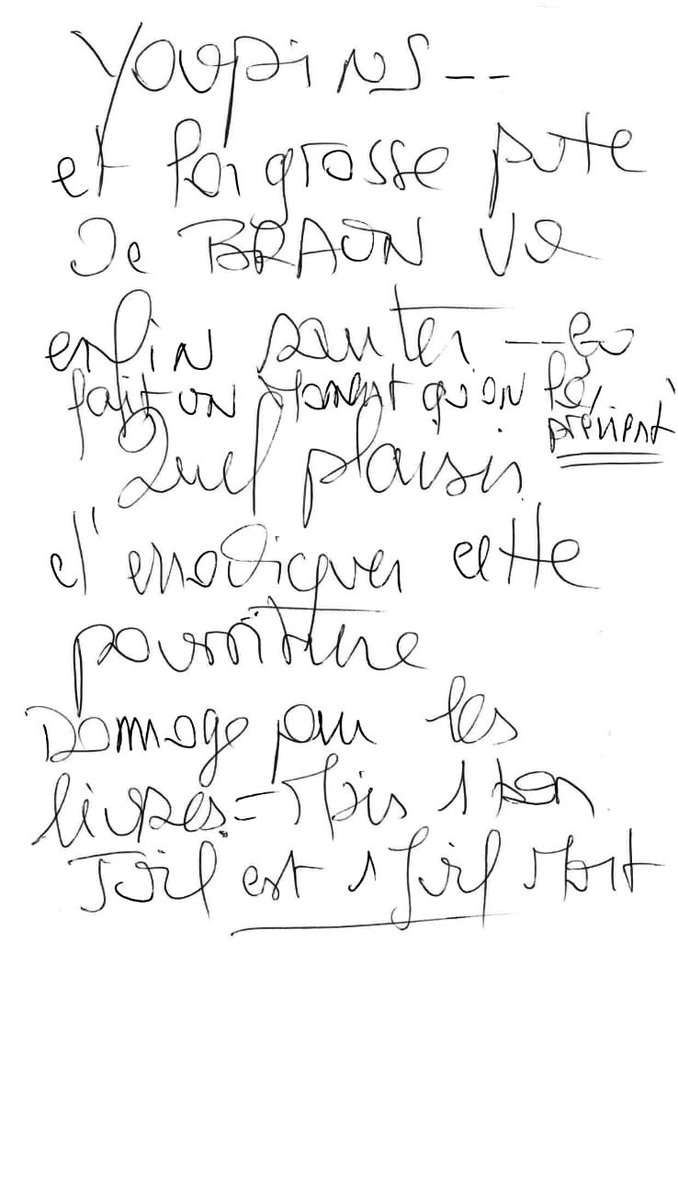 Youpins --
et la grosse pute
de BRAUN va
enfin sauter -- ça
fait un moment qu'on la
prévient
Quel plaisir
d'éradiquer cette
pourriture
Dommage pour les
livres = Mais 1 bon
Juif est 1 Juif Mort